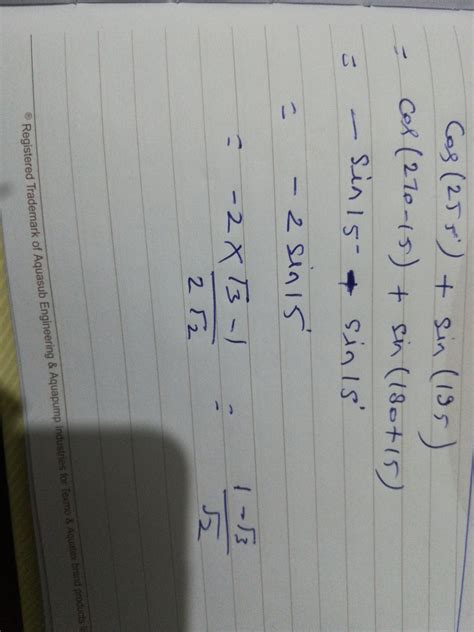 cos(255°) + sin(195)
= cos(270-15) + sin(180+15)
= - sin15° - sin15°
= - 2 sin15°
= -2 × √3 - 1 / 2√2 = 1-√3 / √2
® Registered Trademark of Aquasub Engineering & Aquapump Industries for Texmo & Aquatex brand products